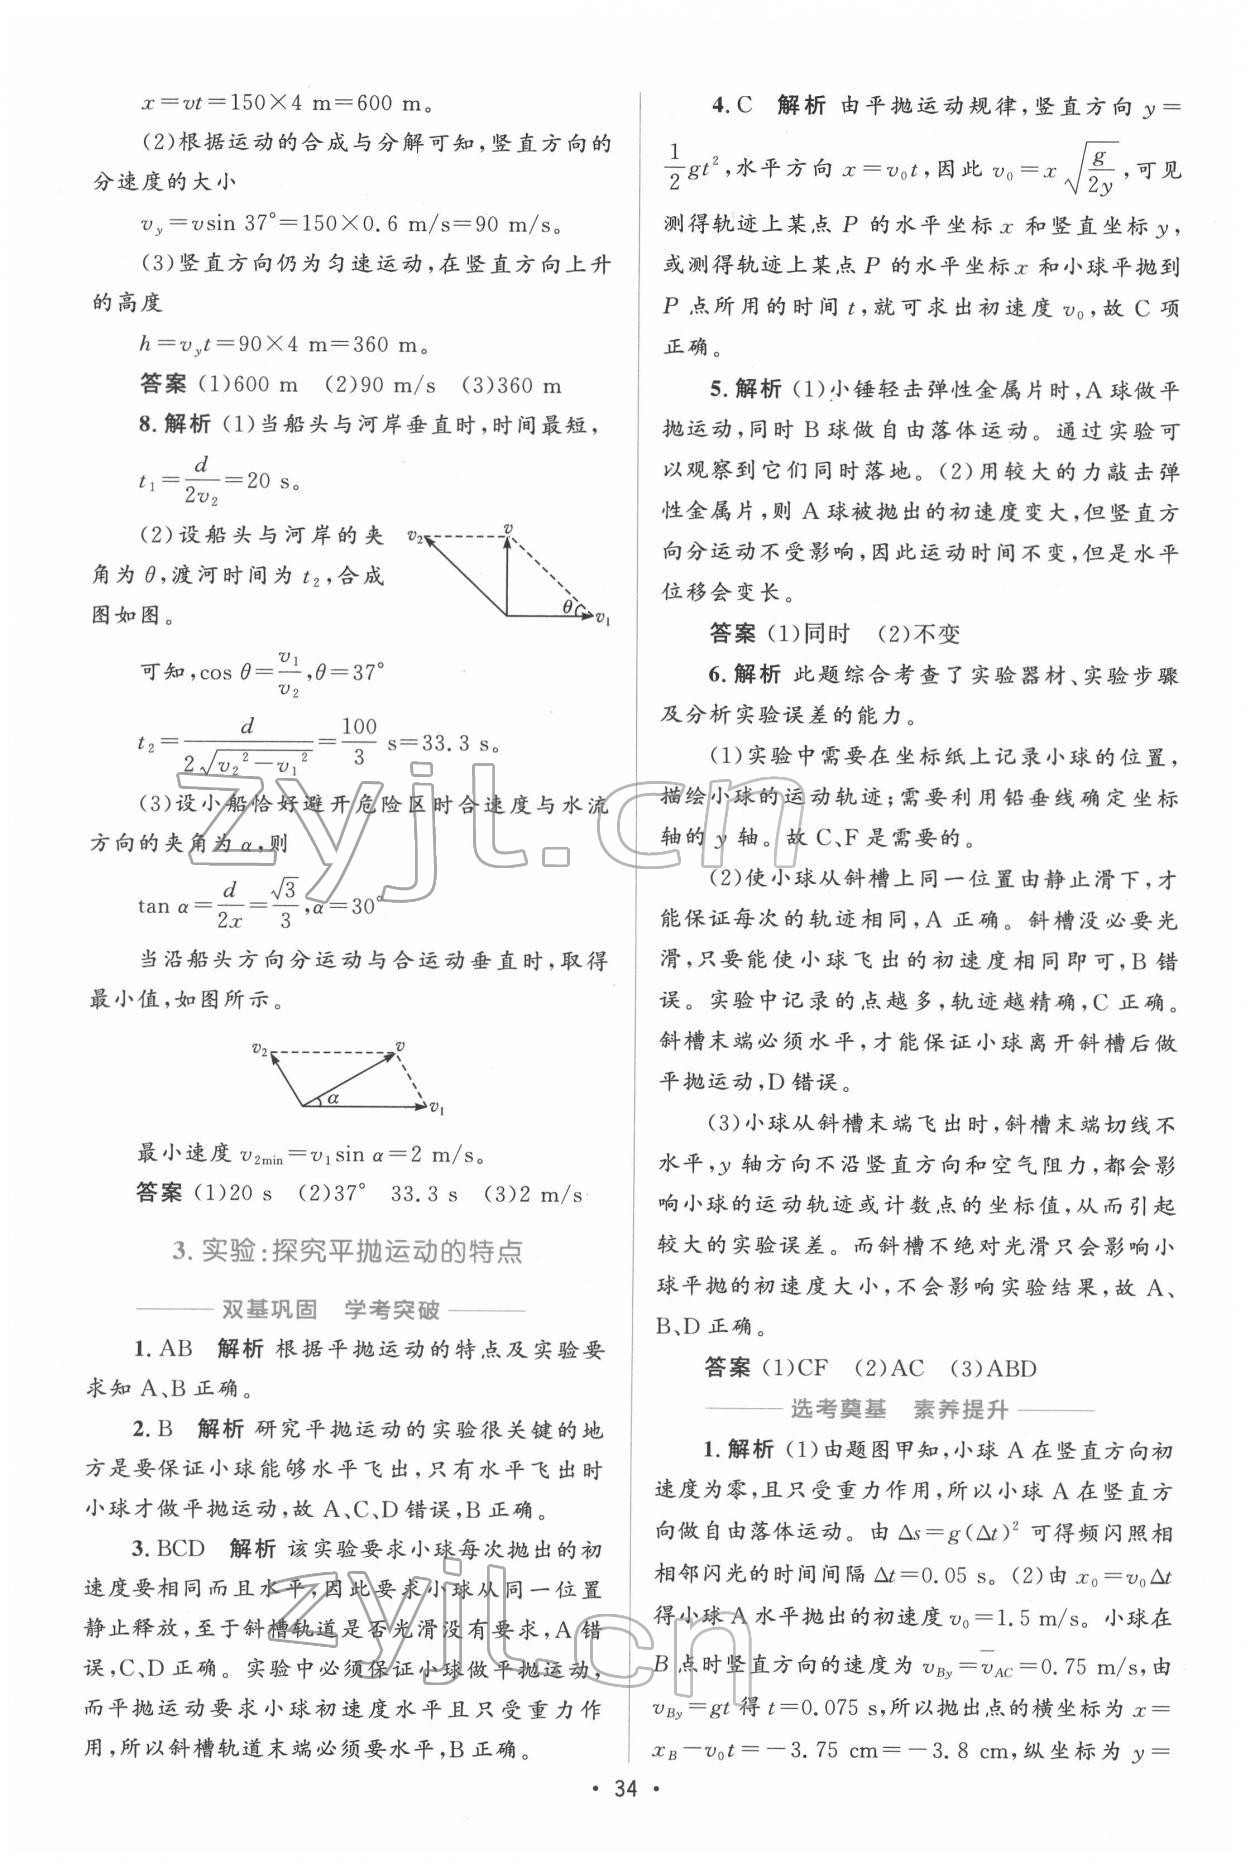 x=vt=150×4 m=600 m。
(2)根据运动的合成与分解可知,竖直方向的
分速度的大小
v_y=vsin 37°=150×0.6 m/s=90 m/s。
(3)竖直方向仍为匀速运动,在竖直方向上升
的高度
h=v_yt=90×4 m=360 m。
答案 (1)600 m (2)90 m/s (3)360 m
8.解析 (1)当船头与河岸垂直时,时间最短,
t₁=d/2v₂=20 s。
(2)设船头与河岸的夹
角为 θ,渡河时间为 t₂,合成
图如图。
v₂ v
θ v₁
可知,cos θ=v₁/v₂,θ=37°
t₂=d/(2√(v₂²-v₁²))=100/3 s=33.3 s。
(3)设小船恰好避开危险区时合速度与水流
方向的夹角为 α,则
tan α=d/2x=√3/3,α=30°
当沿船头方向分运动与合运动垂直时,取得
最小值,如图所示。
v₂ v
α v₁
最小速度 v₂min=v₁sin α=2 m/s。
答案 (1)20 s (2)37° 33.3 s (3)2 m/s
3.实验:探究平抛运动的特点
双基巩固 学考突破
1.AB 解析 根据平抛运动的特点及实验要
求知 A、B 正确。
2.B 解析 研究平抛运动的实验很关键的地
方是要保证小球能够水平飞出,只有水平飞出时
小球才做平抛运动,故 A、C、D 错误,B 正确。
3.BCD 解析 该实验要求小球每次抛出的初
速度要相同而且水平,因此要求小球从同一位置
静止释放,至于斜槽轨道是否光滑没有要求,A 错
误,C、D 正确。实验中必须保证小球做平抛运动,
而平抛运动要求小球初速度水平且只受重力作
用,所以斜槽轨道末端必须要水平,B 正确。
4.C 解析 由平抛运动规律,竖直方向 y=
1/2gt²,水平方向 x=v₀t,因此 v₀=x√(g/2y),可见
测得轨迹上某点 P 的水平坐标 x 和竖直坐标 y,
或测得轨迹上某点 P 的水平坐标 x 和小球平抛到
P 点所用的时间 t,就可求出初速度 v₀,故 C 项
正确。
5.解析 (1)小锤轻击弹性金属片时,A 球做平
抛运动,同时 B 球做自由落体运动。通过实验可
以观察到它们同时落地。(2)用较大的力敲击弹
性金属片,则 A 球被抛出的初速度变大,但竖直方
向分运动不受影响,因此运动时间不变,但是水平
位移会变长。
答案 (1)同时 (2)不变
6.解析 此题综合考查了实验器材、实验步骤
及分析实验误差的能力。
(1)实验中需要在坐标纸上记录小球的位置,
描绘小球的运动轨迹;需要利用铅垂线确定坐标
轴的 y 轴。故 C、F 是需要的。
(2)使小球从斜槽上同一位置由静止滑下,才
能保证每次的轨迹相同,A 正确。斜槽没必要光
滑,只要能使小球飞出的初速度相同即可,B 错
误。实验中记录的点越多,轨迹越精确,C 正确。
斜槽末端必须水平,才能保证小球离开斜槽后做
平抛运动,D 错误。
(3)小球从斜槽末端飞出时,斜槽末端切线不
水平,y 轴方向不沿竖直方向和空气阻力,都会影
响小球的运动轨迹或计数点的坐标值,从而引起
较大的实验误差。而斜槽不绝对光滑只会影响小
球平抛的初速度大小,不会影响实验结果,故 A、
B、D 正确。
答案 (1)CF (2)AC (3)ABD
选考奠基 素养提升
1.解析 (1)由题图甲知,小球 A 在竖直方向初
速度为零,且只受重力作用,所以小球 A 在竖直方
向做自由落体运动。由 Δs=g(Δt)² 可得频闪照相
相邻闪光的时间间隔 Δt=0.05 s。(2)由 x₀=v₀Δt
得小球 A 水平抛出的初速度 v₀=1.5 m/s。小球在
B 点时竖直方向的速度为 v_By=v̄_AC=0.75 m/s,由
v_By=gt 得 t=0.075 s,所以抛出点的横坐标为 x=
x_B-v₀t=-3.75 cm=-3.8 cm,纵坐标为 y=
· 34 ·
zyjl.cn
zyjl.cn